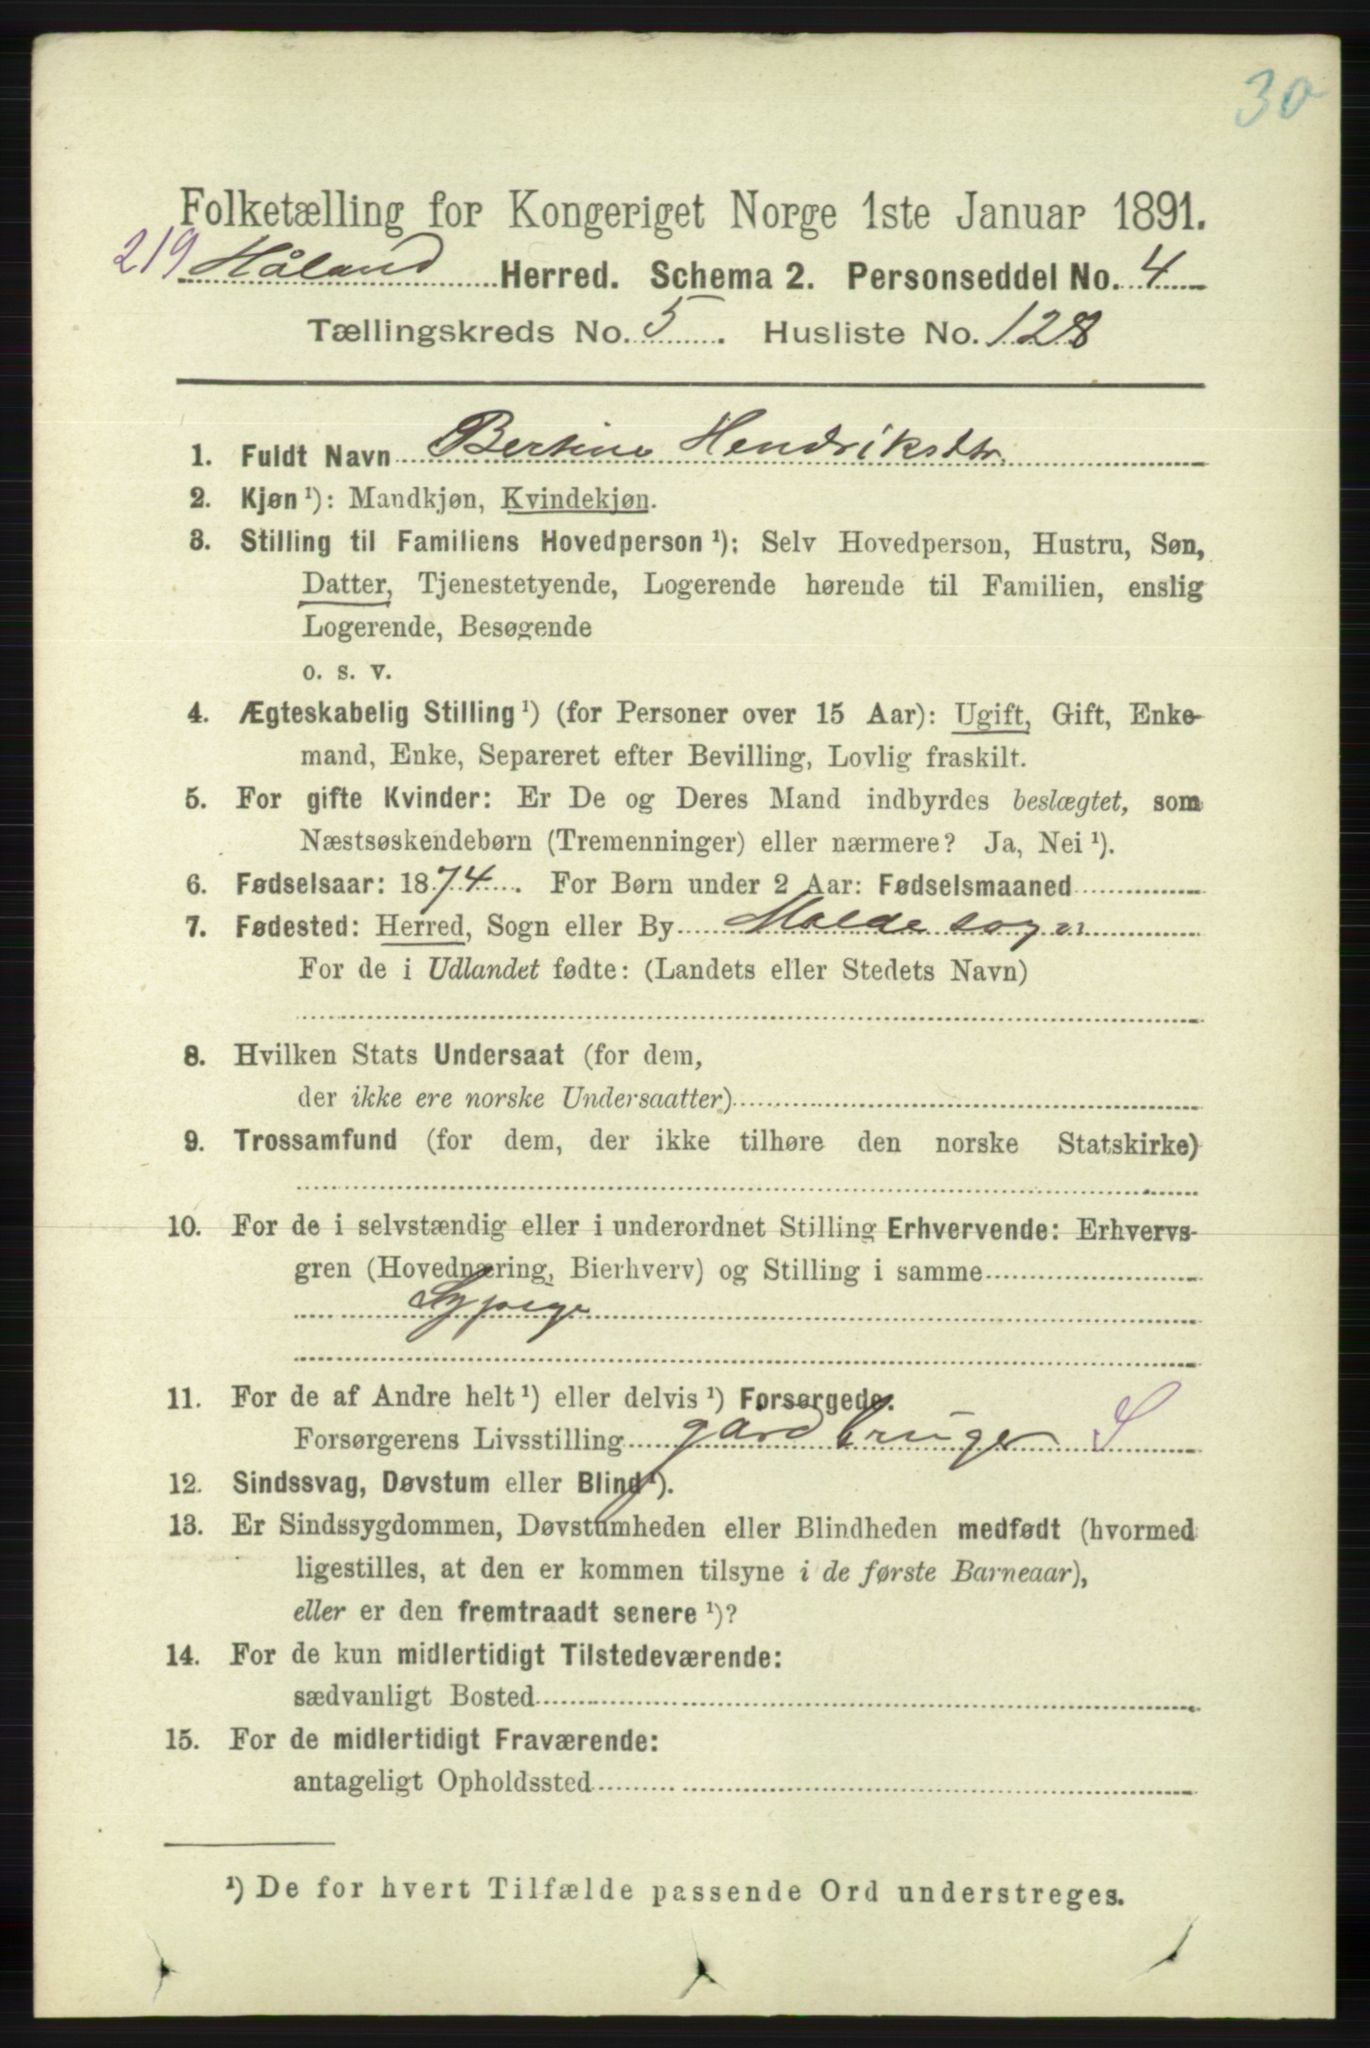 30
Folketælling for Kongeriget Norge 1ste Januar 1891.
219 Håland Herred. Schema 2. Personseddel No. 4
Tællingskreds No. 5. Husliste No. 128
1. Fuldt Navn Bertine Hendriksdtr.
2. Kjøn ¹): Mandkjøn, Kvindekjøn.
3. Stilling til Familiens Hovedperson ¹): Selv Hovedperson, Hustru, Søn,
Datter, Tjenestetyende, Logerende hørende til Familien, enslig
Logerende, Besøgende
o. s. v.
4. Ægteskabelig Stilling ¹) (for Personer over 15 Aar): Ugift, Gift, Enke-
mand, Enke, Separeret efter Bevilling, Lovlig fraskilt.
5. For gifte Kvinder: Er De og Deres Mand indbyrdes beslægtet, som
Næstsøskendebørn (Tremenninger) eller nærmere? Ja, Nei ¹).
6. Fødselsaar: 1874. For Børn under 2 Aar: Fødselsmaaned
7. Fødested: Herred, Sogn eller By Molde sogn
For de i Udlandet fødte: (Landets eller Stedets Navn)
8. Hvilken Stats Undersaat (for dem,
der ikke ere norske Undersaatter)
9. Trossamfund (for dem, der ikke tilhøre den norske Statskirke)
10. For de i selvstændig eller i underordnet Stilling Erhvervende: Erhvervs-
gren (Hovednæring, Bierhverv) og Stilling i samme
Sypige
11. For de af Andre helt ¹) eller delvis ¹) Forsørgede.
Forsørgerens Livsstilling gårdbruger S
12. Sindssvag, Døvstum eller Blind ¹).
13. Er Sindssygdommen, Døvstumheden eller Blindheden medfødt (hvormed
ligestilles, at den er kommen tilsyne i de første Barneaar),
eller er den fremtraadt senere ¹)?
14. For de kun midlertidigt Tilstedeværende:
sædvanligt Bosted
15. For de midlertidigt Fraværende:
antageligt Opholdssted
¹) De for hvert Tilfælde passende Ord understreges.